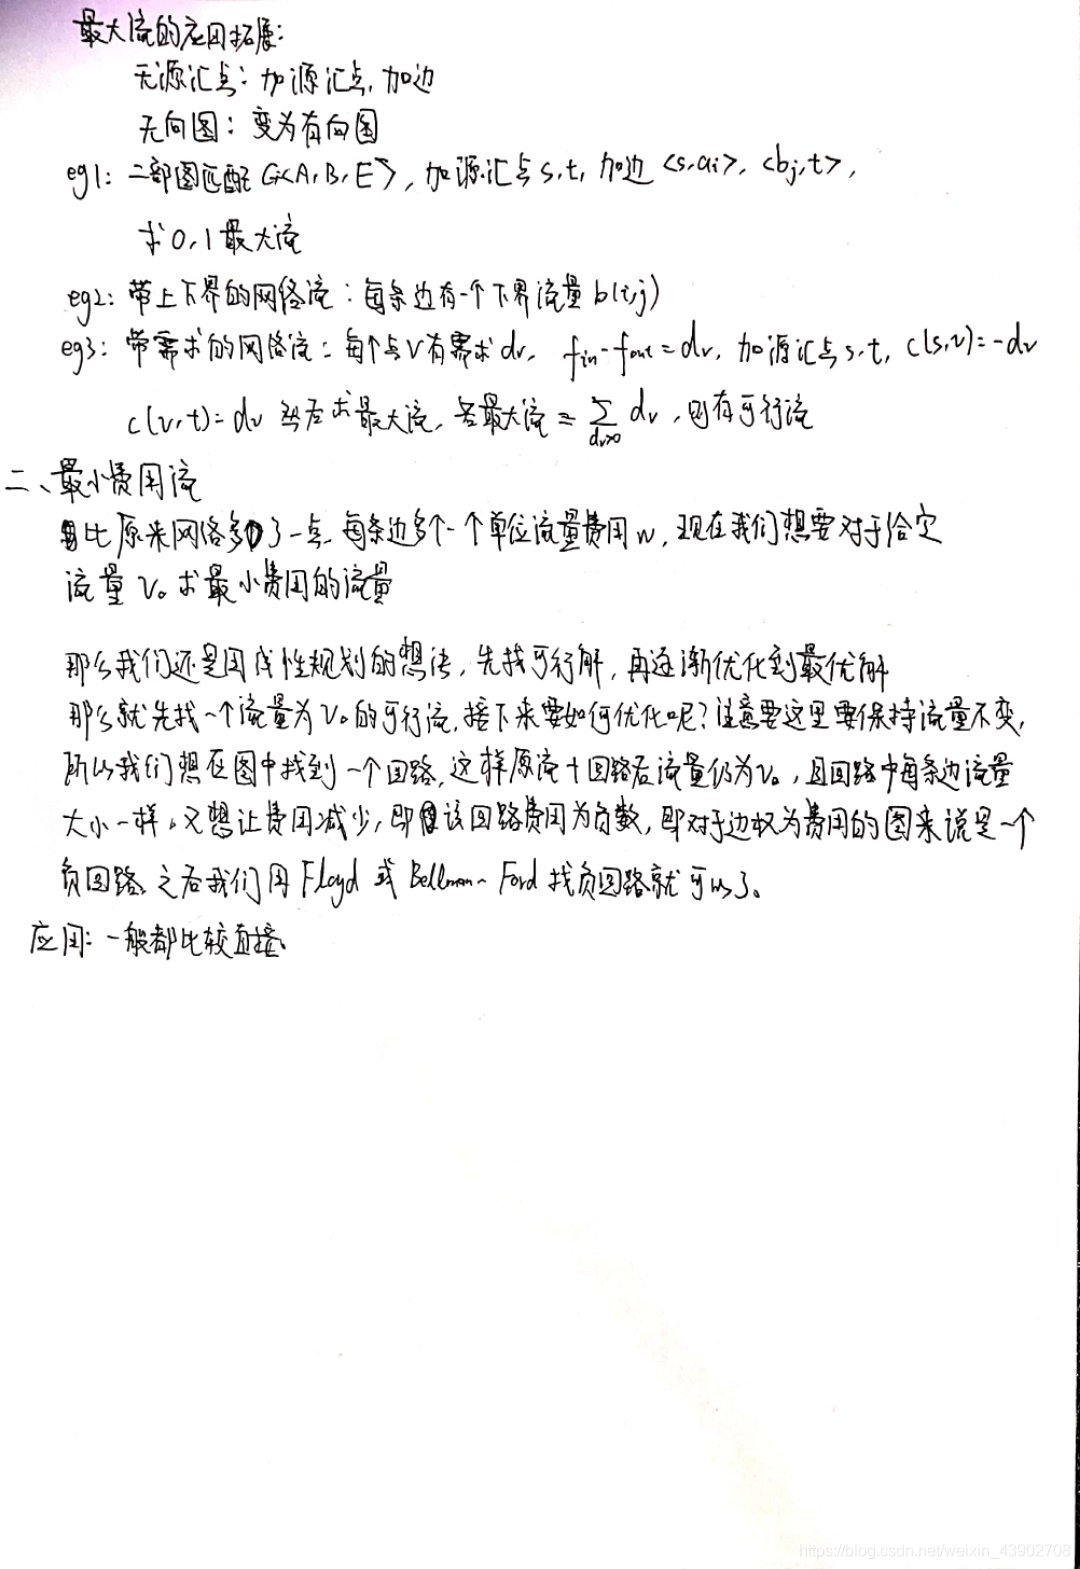 最大流的应用拓展:
无源汇点: 加源汇点, 加边
无向图: 变为有向图
eg1: 二部图匹配 G<A, B, E>, 加源汇点 s, t, 加边 <s, ai>, <bj, t>,
求 0, 1 最大流
eg2: 带上下界的网络流: 每条边有一个下界流量 b(i,j)
eg3: 带需求的网络流: 每个点V有需求 dv, fin - fout = dv, 加源汇点 s, t, c(s,v) = -dv
c(v,t) = dv 然后求最大流, 若最大流 = ∑dv>0 dv, 则有可行流
二、最小费用流
比原来网络多了一点, 每条边多个一个单位流量费用 w, 现在我们想要对于给定
流量 v0 求最小费用的流量
那么我们还是用线性规划的想法, 先找可行解, 再逐渐优化到最优解
那么就先找一个流量为 v0 的可行流, 接下来要如何优化呢? 注意要这里要保持流量不变,
所以我们想在图中找到一个回路, 这样原流+回路后流量仍为 v0, 且回路中每条边流量
大小一样。又想让费用减少, 即该回路费用为负数, 即对于边权为费用的图来说是一个
负回路, 之后我们用 Floyd 或 Bellman-Ford 找负回路就可以了。
应用: 一般都比较直接。
https://blog.csdn.net/weixin_43902708